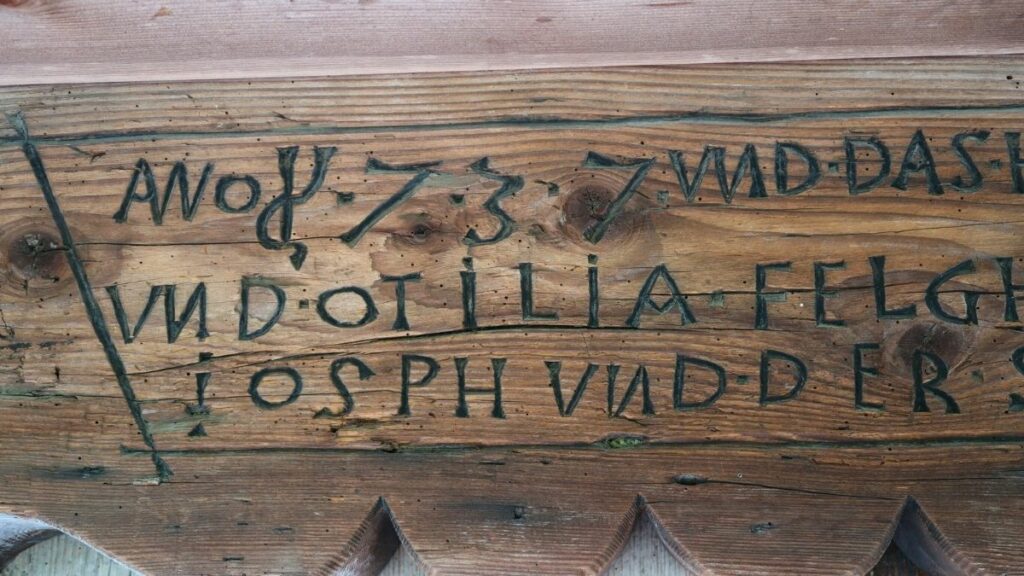 ANO 1·7·3·7·VND·DAS·H
VND·OTILIA·FELGH
IOSPH VND·DER·S